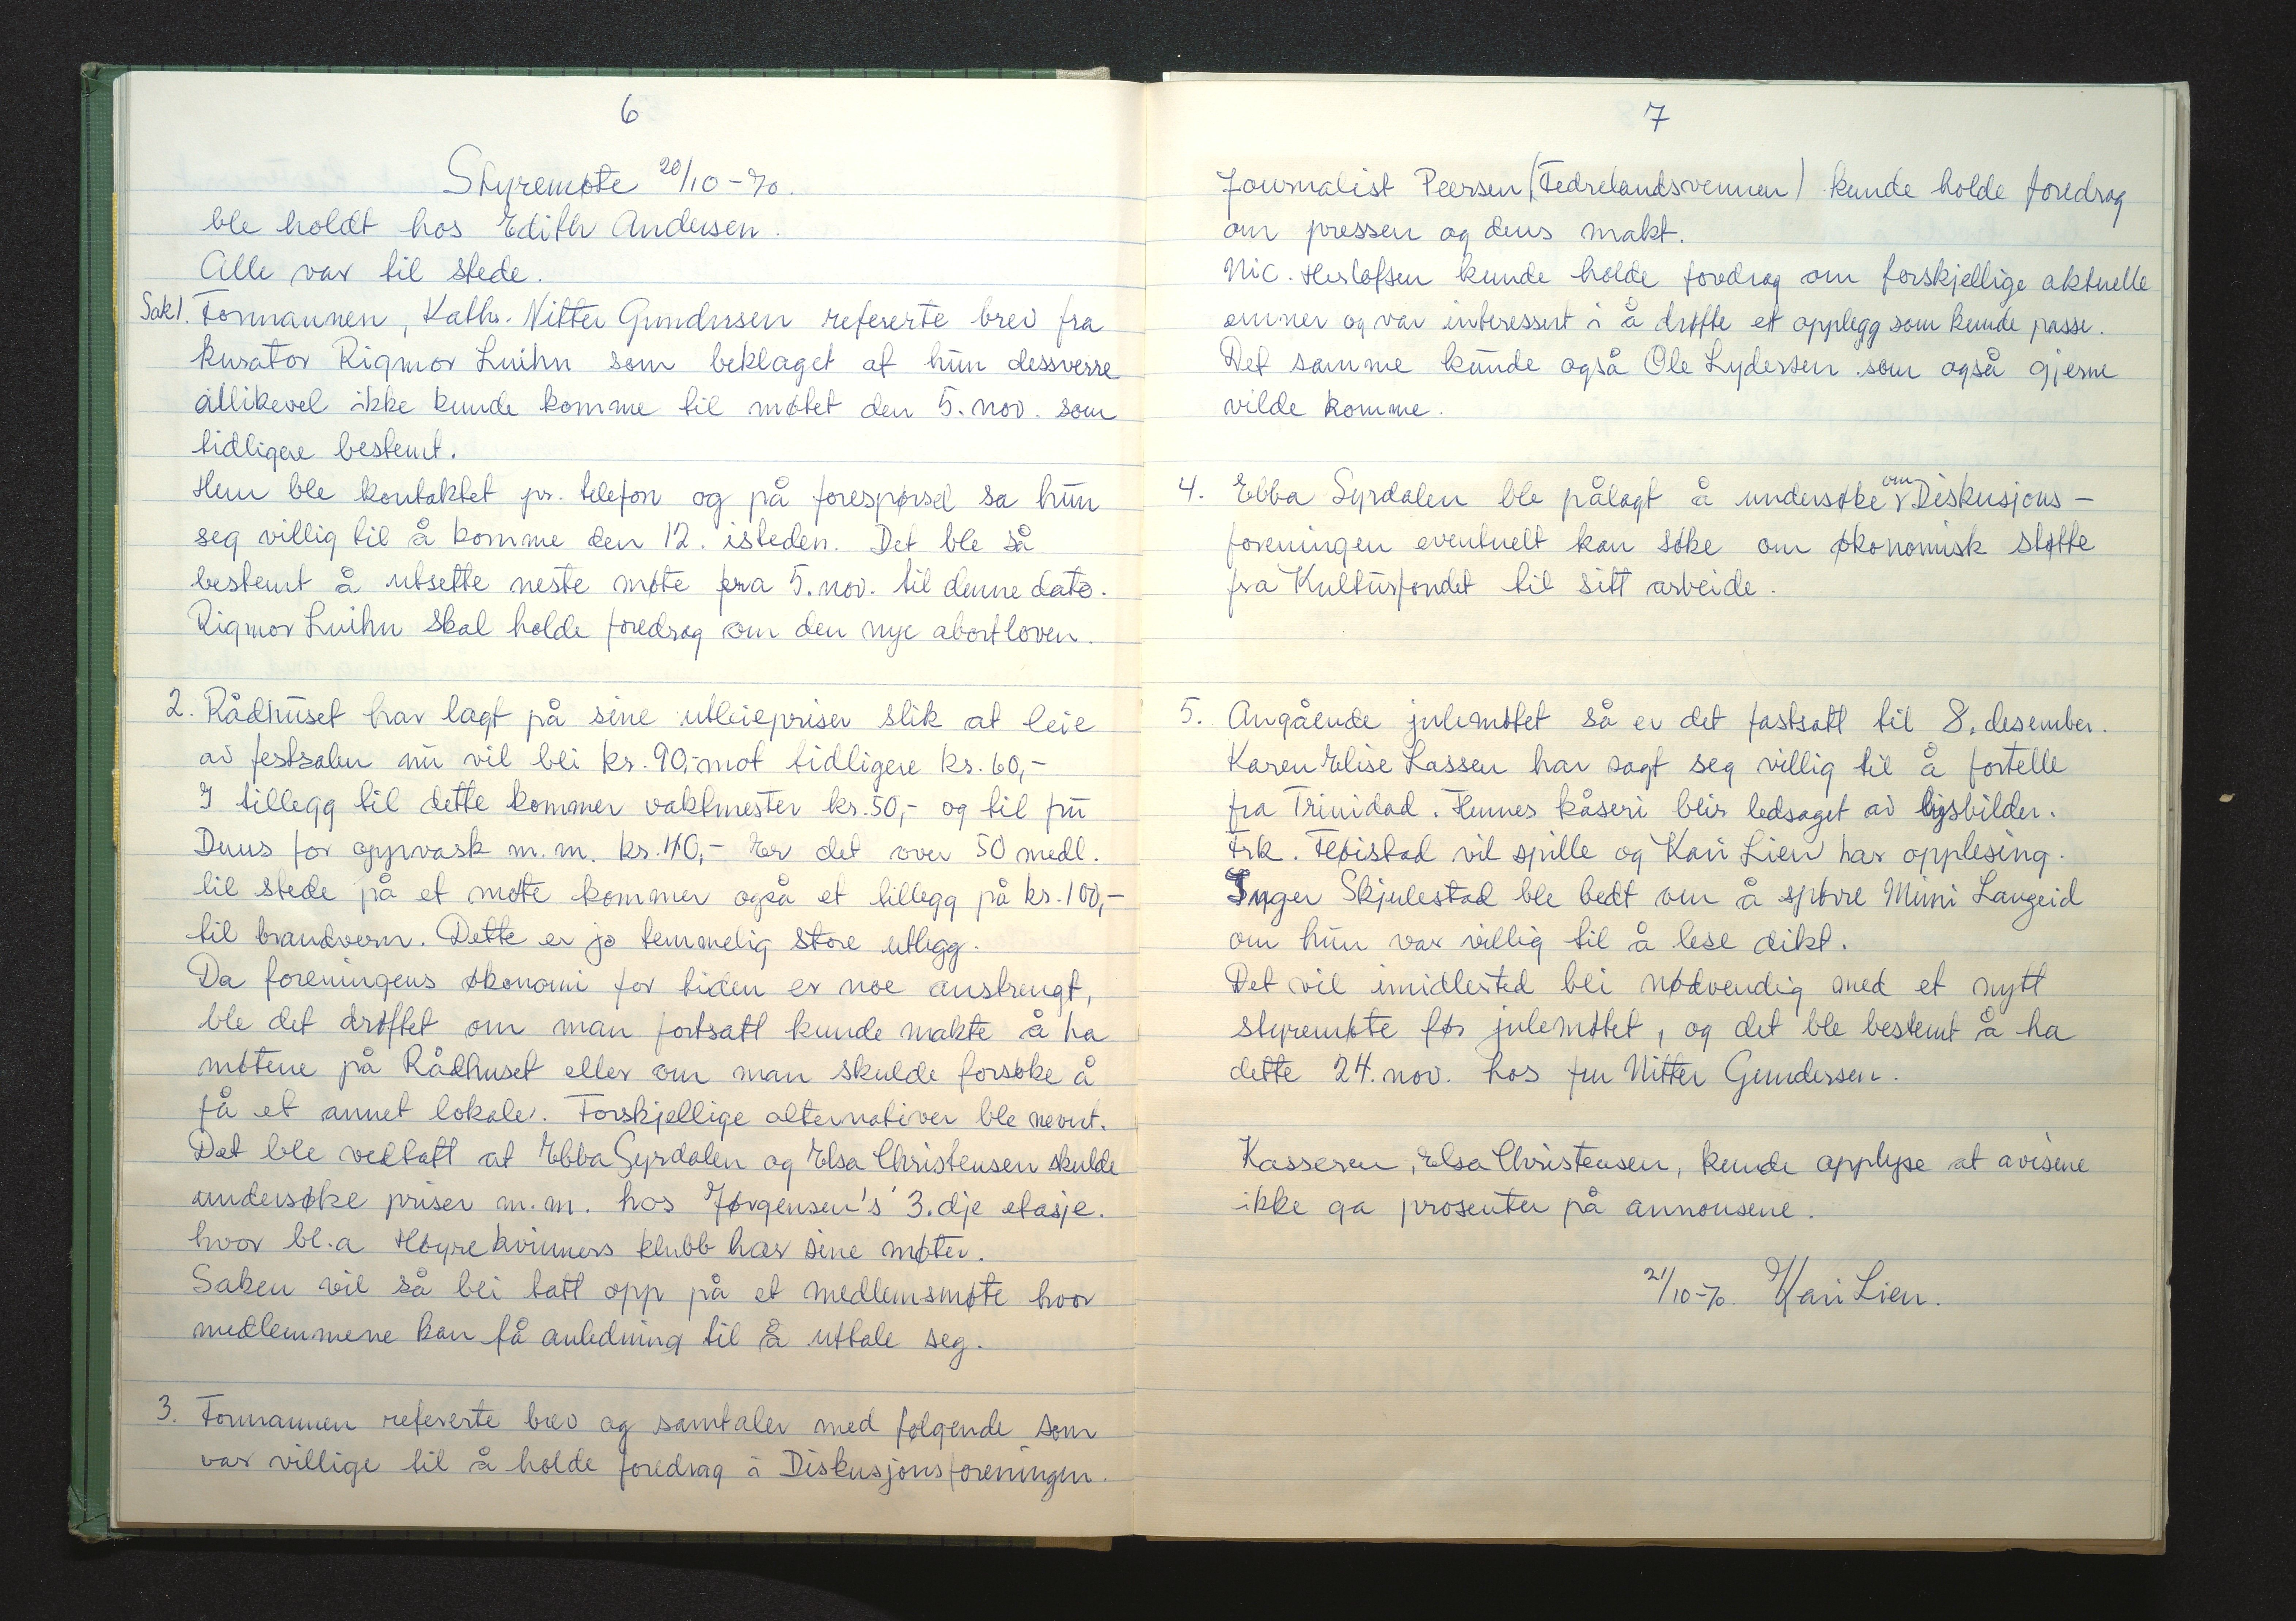 6
Styremøte 20/10-70.
ble holdt hos Edith Andersen.
Alle var til stede.
Sak 1. Formannen, Kathr. Nitter Gundersen refererte brev fra
kurator Rigmor Luihn som beklaget at hun dessverre
allikevel ikke kunde komme til møtet den 5. nov. som
tidligere bestemt.
Hun ble kontaktet pr. telefon og på forespørsel sa hun
seg villig til å komme den 12. isteden. Det ble så
bestemt å utsette neste møte fra 5. nov. til denne dato.
Rigmor Luihn skal holde foredrag om den nye abortloven.
2. Rådhuset har lagt på sine utleiepriser slik at leie
av festsalen nu vil bli kr. 90,- mot tidligere kr. 60,-
I tillegg til dette kommer vaktmester kr. 50,- og til fru
Duus for oppvask m.m. kr. 40,- Er det over 50 medl.
til stede på et møte kommer også et tillegg på kr. 100,-
til brandvern. Dette er jo temmelig store utlegg.
Da foreningens økonomi for tiden er noe anstrengt,
ble det drøftet om man fortsatt kunde makte å ha
møtene på Rådhuset eller om man skulde forsøke å
få et annet lokale. Forskjellige alternativer ble nevnt.
Det ble vedtatt at Ebba Syrdalen og Elsa Christensen skulde
undersøke priser m.m. hos Jørgensen's 3.dje etasje.
hvor bl.a Høyrekvinners klubb har sine møter.
Saken vil så bli tatt opp på et medlemsmøte hvor
medlemmene kan få anledning til å uttale seg.
3. Formannen refererte brev og samtaler med følgende som
var villige til å holde foredrag i Diskusjonsforeningen.
7
Journalist Peersen (Fedrelandsvennen) kunde holde foredrag
om pressen og dens makt.
Nic. Herlofsen kunde holde foredrag om forskjellige aktuelle
emner og var interessert i å drøfte et opplegg som kunde passe.
Det samme kunde også Ole Lydersen som også gjerne
vilde komme.
4. Ebba Syrdalen ble pålagt å undersøke om Diskusjons-
foreningen eventuelt kan søke om økonomisk støtte
fra Kulturfondet til sitt arbeide.
5. Angående julemøtet så er det fastsatt til 8. desember.
Karen Elise Lassen har sagt seg villig til å fortelle
fra Trinidad. Hennes kåseri blir ledsaget av lysbilder.
Frk. vil spille og Kari Lien har opplesing.
Inger Skjulestad ble bedt om å spørre Mimi Langeid
om hun var villig til å lese dikt.
Det vil imidlertid bli nødvendig med et nytt
styremøte før julemøtet, og det ble bestemt å ha
dette 24. nov. hos fru Nitter Gundersen.
Kasseren, Elsa Christensen, kunde opplyse at avisene
ikke ga prosenter på annonsene.
21/10-70. Kari Lien.